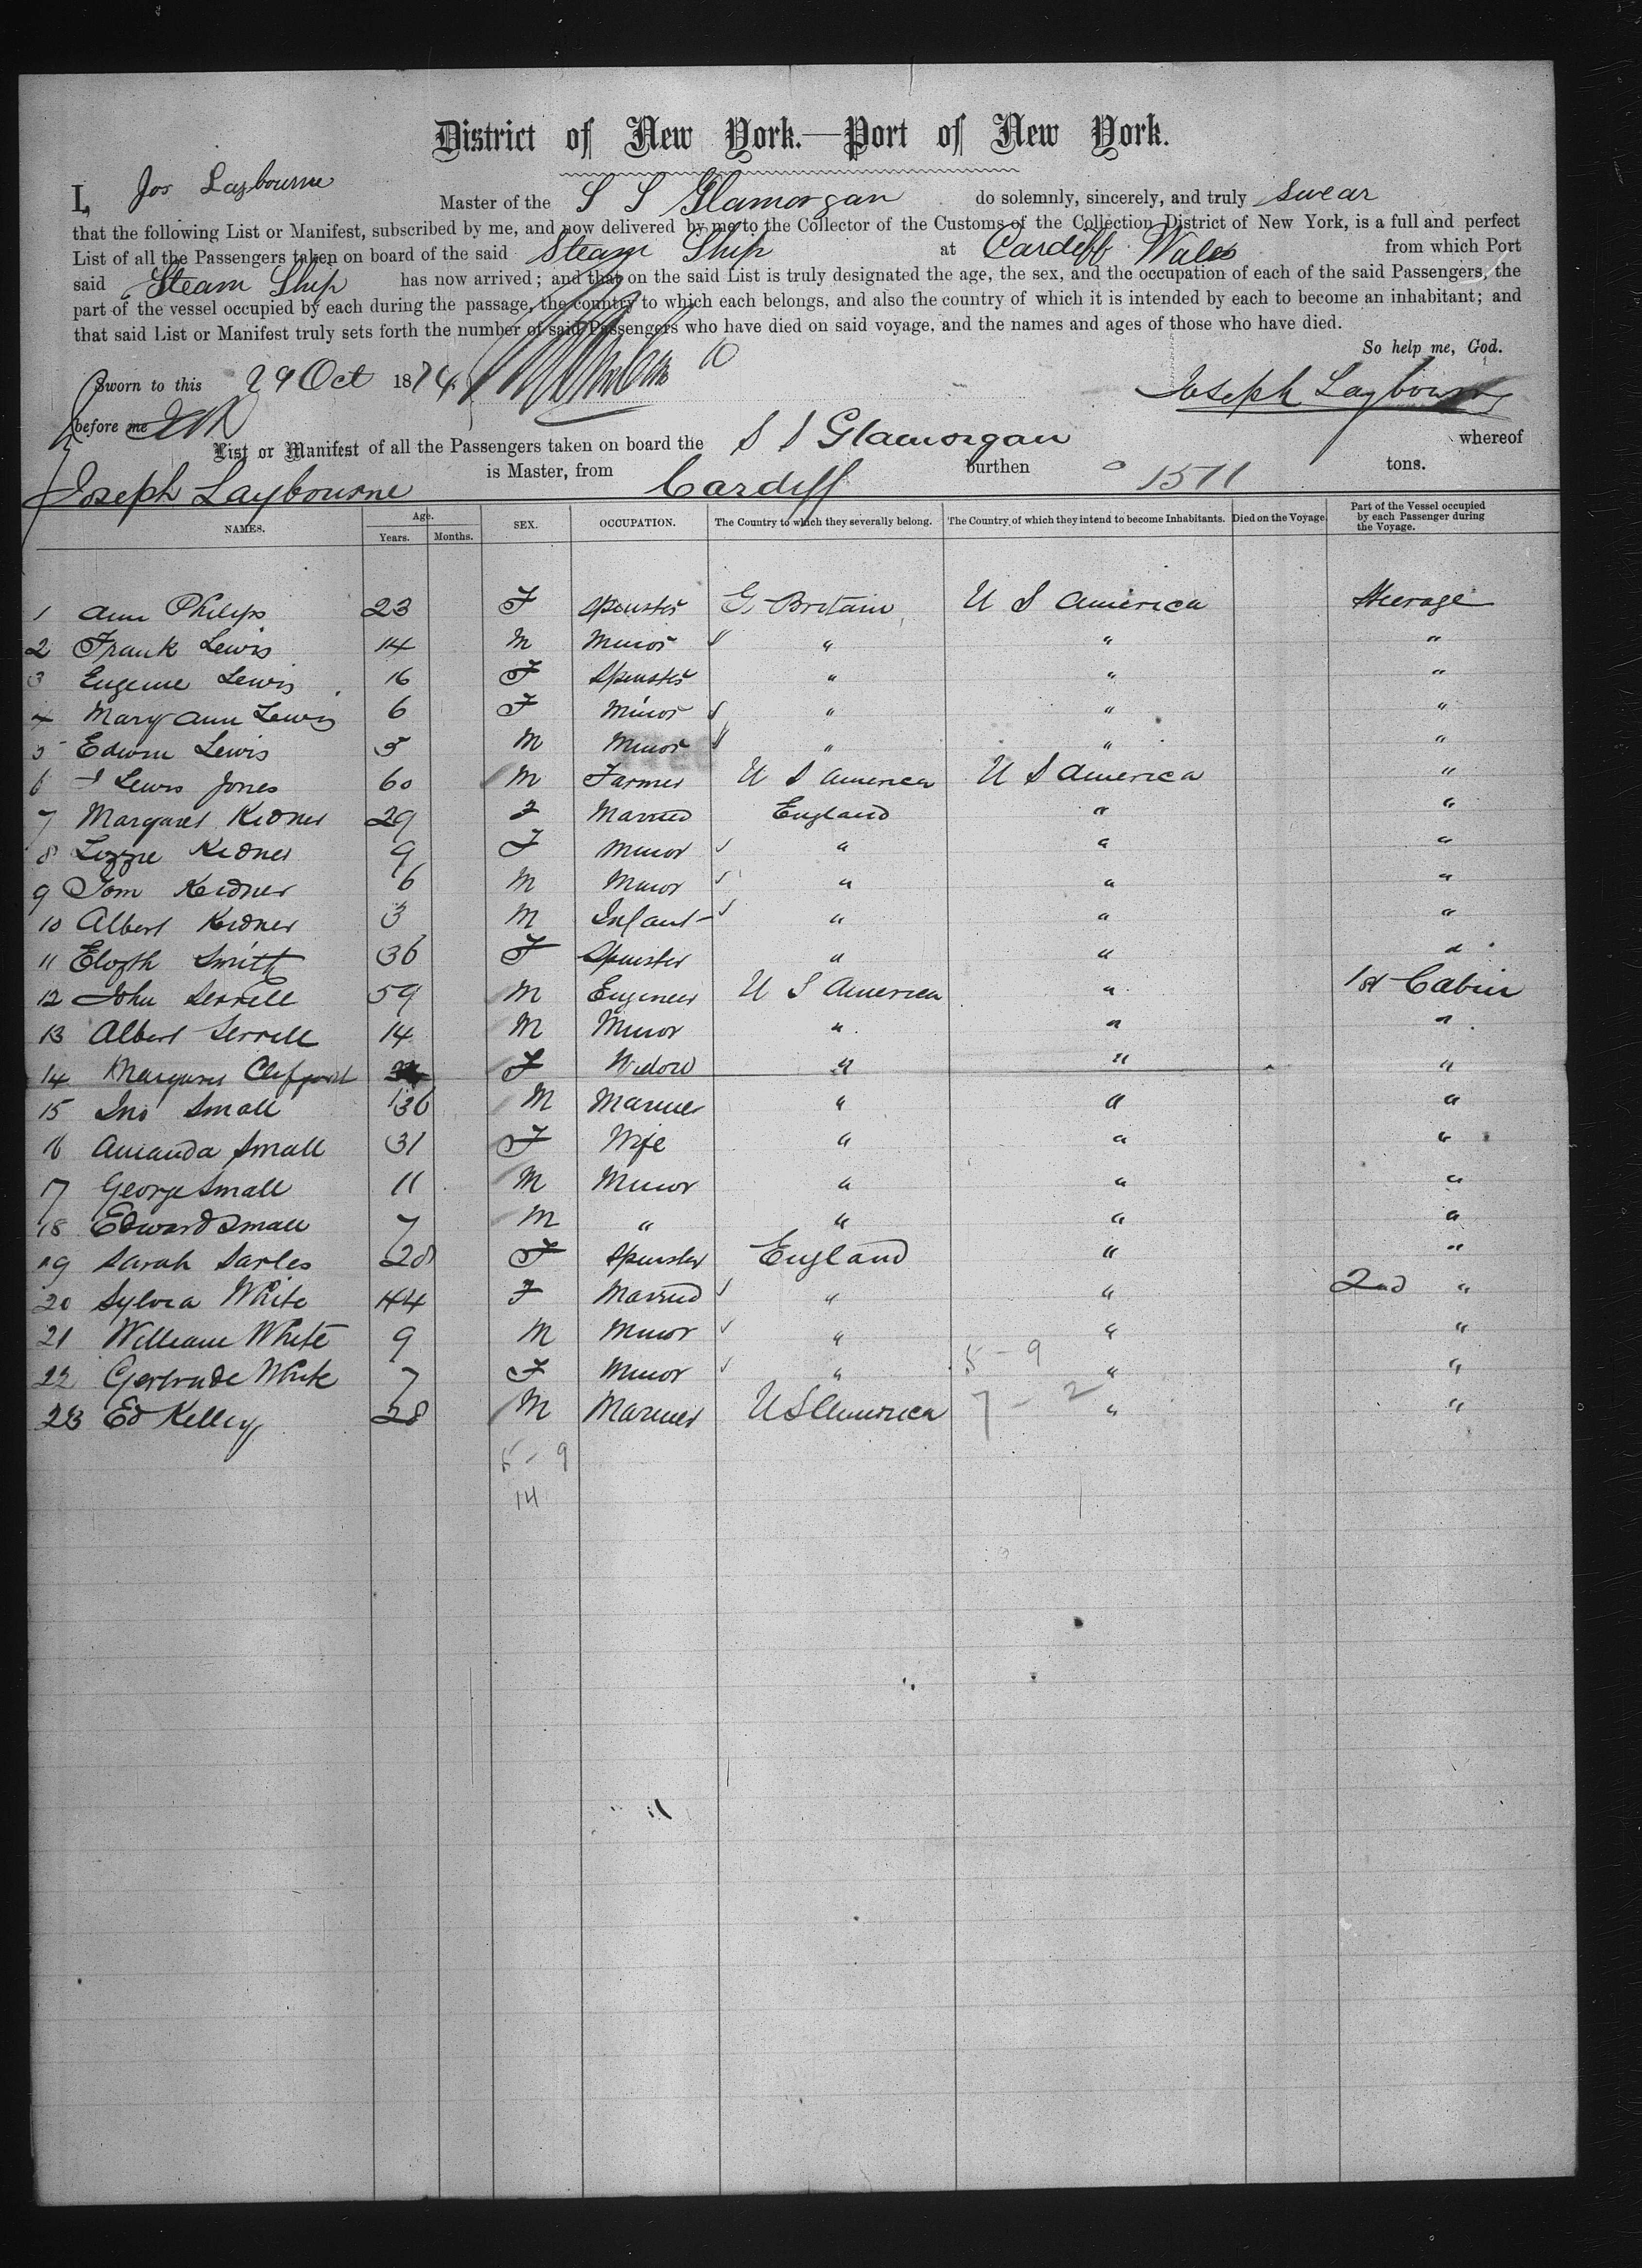 District of New York.—Port of New York.
I, Jos Laybourne Master of the S S Glamorgan do solemnly, sincerely, and truly swear
that the following List or Manifest, subscribed by me, and now delivered by me to the Collector of the Customs of the Collection District of New York, is a full and perfect
List of all the Passengers taken on board of the said Steam Ship at Cardiff Wales from which Port
said Steam Ship has now arrived; and that on the said List is truly designated the age, the sex, and the occupation of each of the said Passengers, the
part of the vessel occupied by each during the passage, the country to which each belongs, and also the country of which it is intended by each to become an inhabitant; and
that said List or Manifest truly sets forth the number of said Passengers who have died on said voyage, and the names and ages of those who have died.
So help me, God.
Sworn to this 29 Oct 1874 Joseph Laybourne
before me
List or Manifest of all the Passengers taken on board the S S Glamorgan whereof
Joseph Laybourne is Master, from Cardiff burthen 1511 tons.
NAMES. Age. Years. Months. SEX. OCCUPATION. The Country to which they severally belong. The Country of which they intend to become Inhabitants. Died on the Voyage. Part of the Vessel occupied by each Passenger during the Voyage.
1 Ann Philips 23 F Spinster G. Britain U S America Steerage
2 Frank Lewis 14 M Minor " " "
3 Eugenie Lewis 16 F Spinster " " "
4 Mary Ann Lewis 6 F Minor " " "
5 Edwin Lewis 5 M Minor " " "
6 Lewis Jones 60 M Farmer U S America U S America "
7 Margaret Kidner 29 F Married England " "
8 Lizzie Kidner 9 F Minor " " "
9 Tom Kidner 6 M Minor " " "
10 Albert Kidner 3 M Infant " " "
11 Elizth Smith 36 F Spinster " " "
12 John Serrell 59 M Engineer U S America " 1st Cabin
13 Albert Serrell 14 M Minor " " "
14 Margaret F Widow " " "
15 Jno Small 36 M Mariner " " "
16 Amanda Small 31 F Wife " " "
17 George Small 11 M Minor " " "
18 Edward Small 7 M " " " "
19 Sarah Sarles 28 F Spinster England " "
20 Sylvia White 44 F Married " " 2nd "
21 William White 9 M Minor " " "
22 Gertrude White 7 F Minor " 5 - 9 " "
23 Ed Kelley 28 M Mariner U S America 7 - 2 " "
5 - 9
14